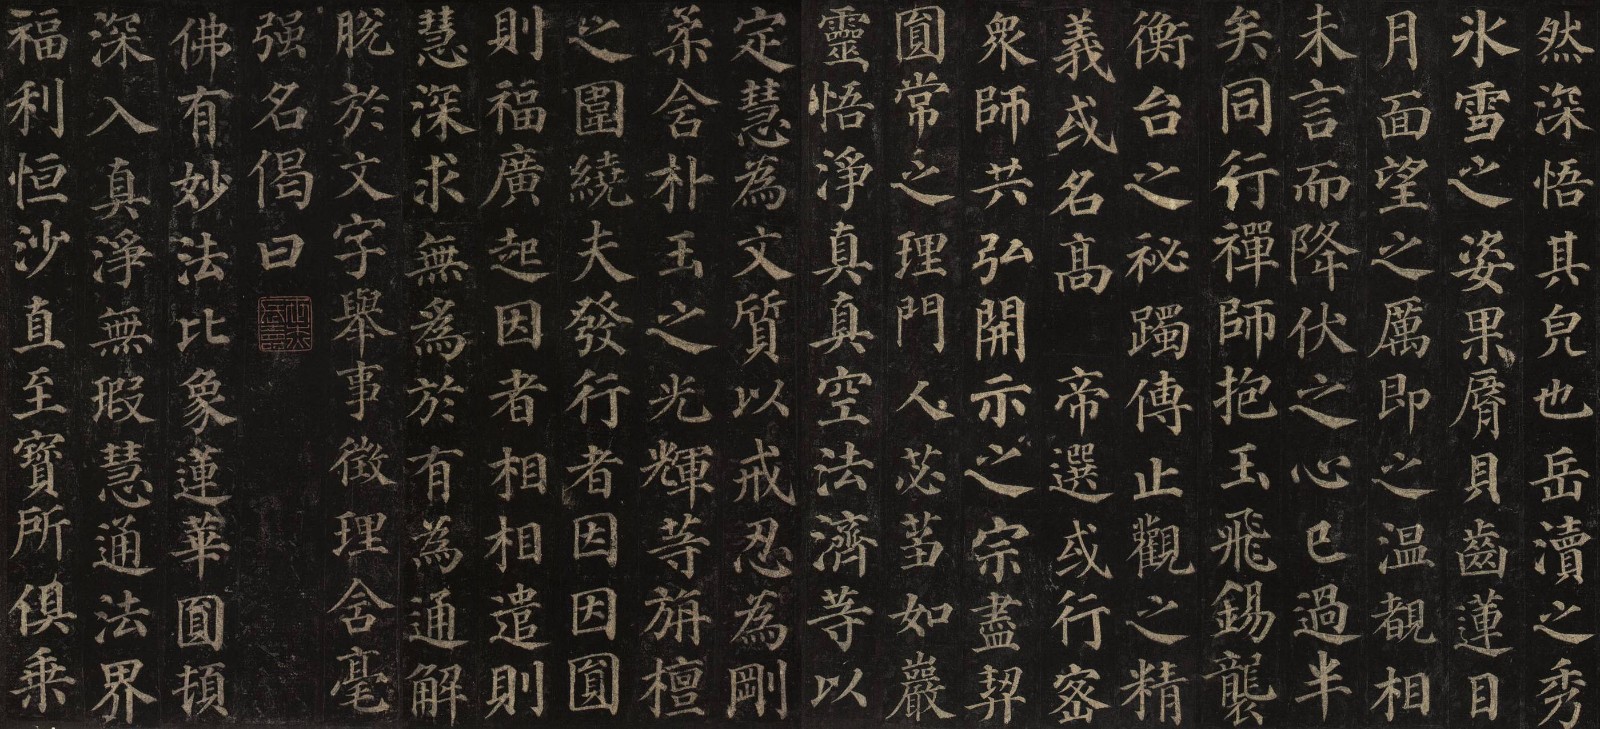 然深悟其皃也岳瀆之秀
氷雪之姿果脣貝齒蓮目
月面望之厲即之温覩相
未言而降伏之心已過半
矣同行禪師抱玉飛錫襲
衡台之祕躅傳止觀之精
義或名高帝選或行密
衆師共弘開示之宗盡契
圎常之理門人苾蒭如巖
靈悟淨真真空法濟等以
定慧為文質以戒忍為剛
柔含朴玉之光輝等旃檀
之圍繞夫發行者因因圎
則福廣起因者相相遣則
慧深求無爲於有為通解
脫於文字舉事徵理含毫
强名偈曰
佛有妙法比象蓮華圎頓
深入真淨無瑕慧通法界
福利恒沙直至寶所俱乗